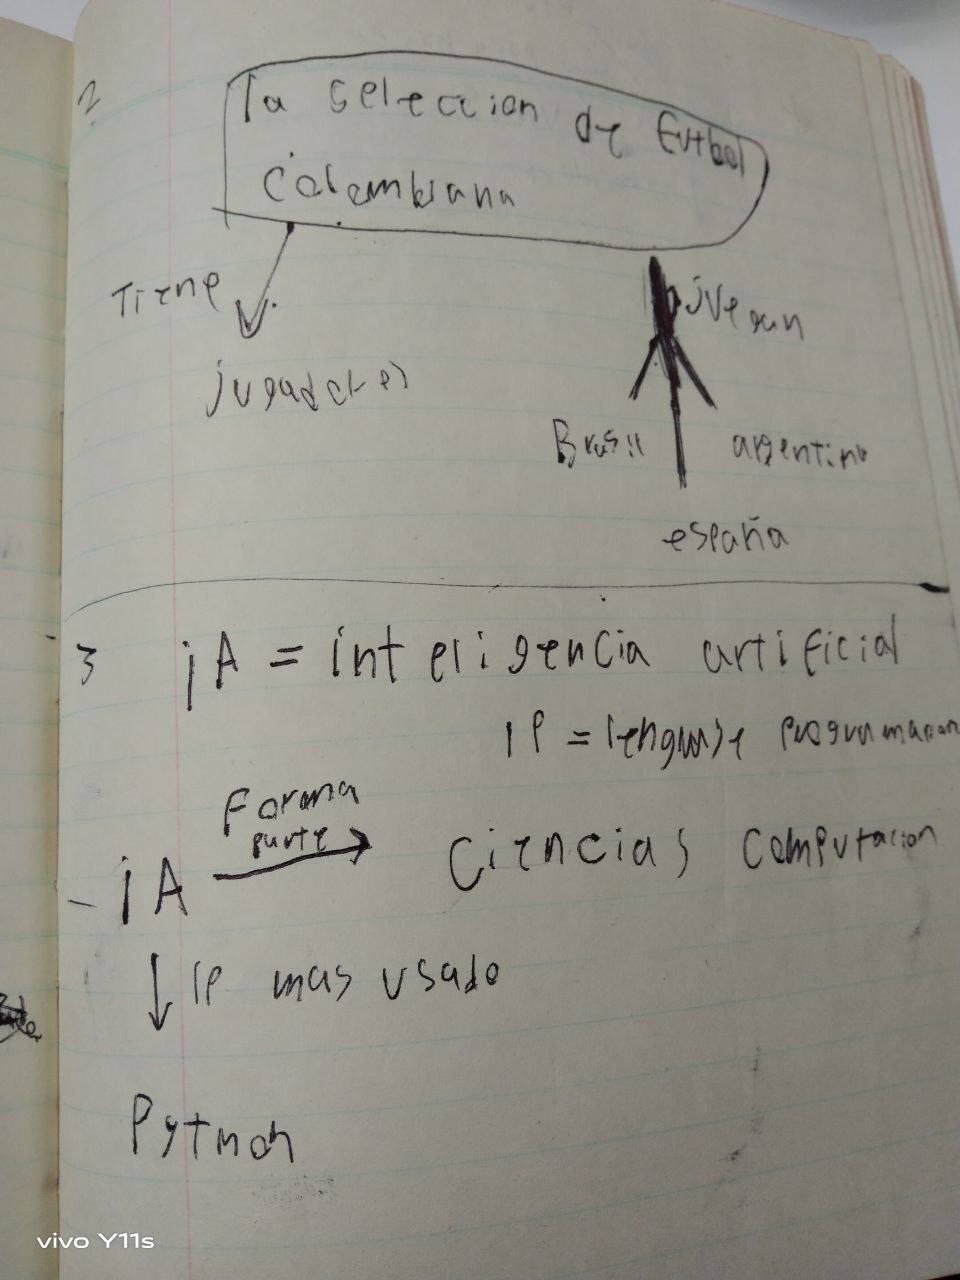 2
la seleccion de futbol
colombiana
Tiene
juegan
jugadores
Brasil
argentina
españa
3 iA = inteligencia artificial
lP = lenguaje programacion
Forma
parte
- iA
Ciencias computacion
lP mas usado
Python
vivo Y11s